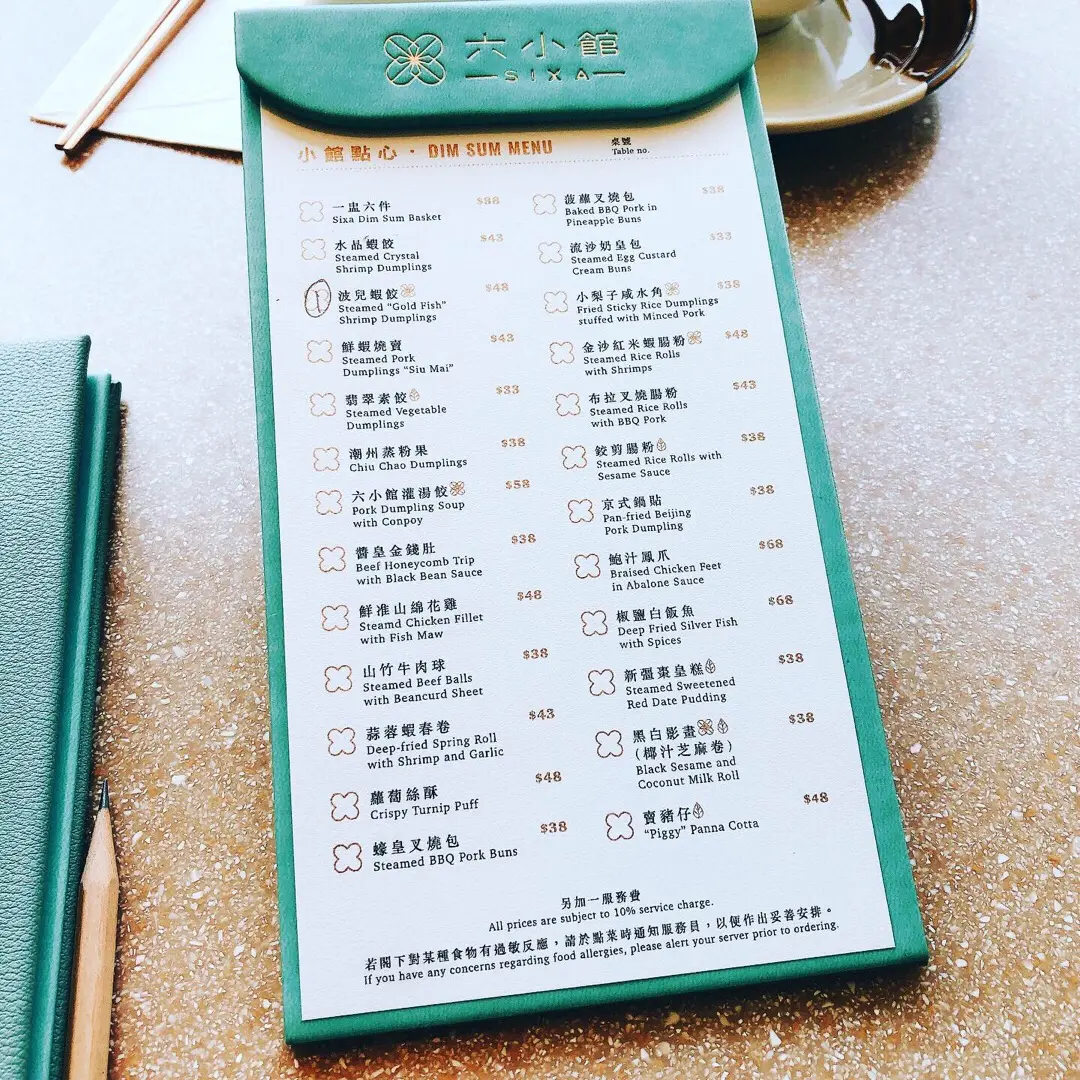 六小館
SIXA
小館點心 · DIM SUM MENU
桌號
Table no.
一盅六件 $88
Sixa Dim Sum Basket
水晶蝦餃 $43
Steamed Crystal
Shrimp Dumplings
波兒蝦餃 $48
Steamed “Gold Fish”
Shrimp Dumplings
鮮蝦燒賣 $43
Steamed Pork
Dumplings “Siu Mai”
翡翠素餃 $33
Steamed Vegetable
Dumplings
潮州蒸粉果 $38
Chiu Chao Dumplings
六小館灌湯餃 $58
Pork Dumpling Soup
with Conpoy
醬皇金錢肚 $38
Beef Honeycomb Trip
with Black Bean Sauce
鮮淮山綿花雞 $48
Steamd Chicken Fillet
with Fish Maw
山竹牛肉球 $38
Steamed Beef Balls
with Beancurd Sheet
蒜蓉蝦春卷 $43
Deep-fried Spring Roll
with Shrimp and Garlic
蘿蔔絲酥 $48
Crispy Turnip Puff
蠔皇叉燒包 $38
Steamed BBQ Pork Buns
菠蘿叉燒包 $38
Baked BBQ Pork in
Pineapple Buns
流沙奶皇包 $33
Steamed Egg Custard
Cream Buns
小梨子咸水角 $38
Fried Sticky Rice Dumplings
stuffed with Minced Pork
金沙紅米蝦腸粉 $48
Steamed Rice Rolls
with Shrimps
布拉叉燒腸粉 $43
Steamed Rice Rolls
with BBQ Pork
鉸剪腸粉 $38
Steamed Rice Rolls with
Sesame Sauce
京式鍋貼 $38
Pan-fried Beijing
Pork Dumpling
鮑汁鳳爪 $68
Braised Chicken Feet
in Abalone Sauce
椒鹽白飯魚 $68
Deep Fried Silver Fish
with Spices
新疆棗皇糕 $38
Steamed Sweetened
Red Date Pudding
黑白影畫 $38
(椰汁芝麻卷)
Black Sesame and
Coconut Milk Roll
賣豬仔 $48
“Piggy” Panna Cotta
另加一服務費
All prices are subject to 10% service charge.
若閣下對某種食物有過敏反應，請於點菜時通知服務員，以便作出妥善安排。
If you have any concerns regarding food allergies, please alert your server prior to ordering.